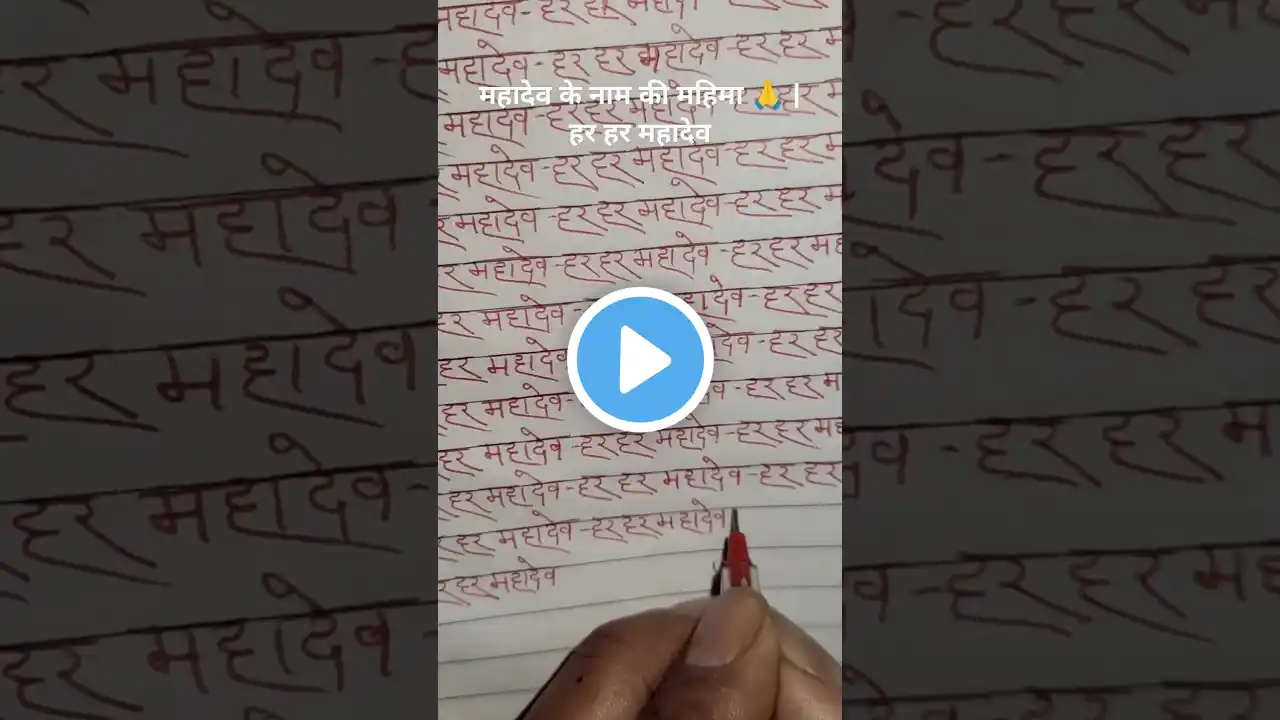 महादेव-हर हर महादे
महादेव-हर हर महादेव-हर हर म
महादेव के नाम की महिमा 🙏 |
महादेव-हर हर महादेव-हर हर म
हर हर महादेव
महादेव-हर हर महादेव-हर हर म
र महादेव-हर हर महादेव-हर हर म
र महादेव-हर हर महादेव-हर हर मह
हर महादेव हादेव-हर हर
हर महादेव देव-हर हर
हर महादेव- व-हर हर म
हर महादेव-हर हर महादेव-हर हर मह
हर महादेव-हर हर महादेव-हर हर
र हर महादेव-हर हर महादेव
र हर महादेव